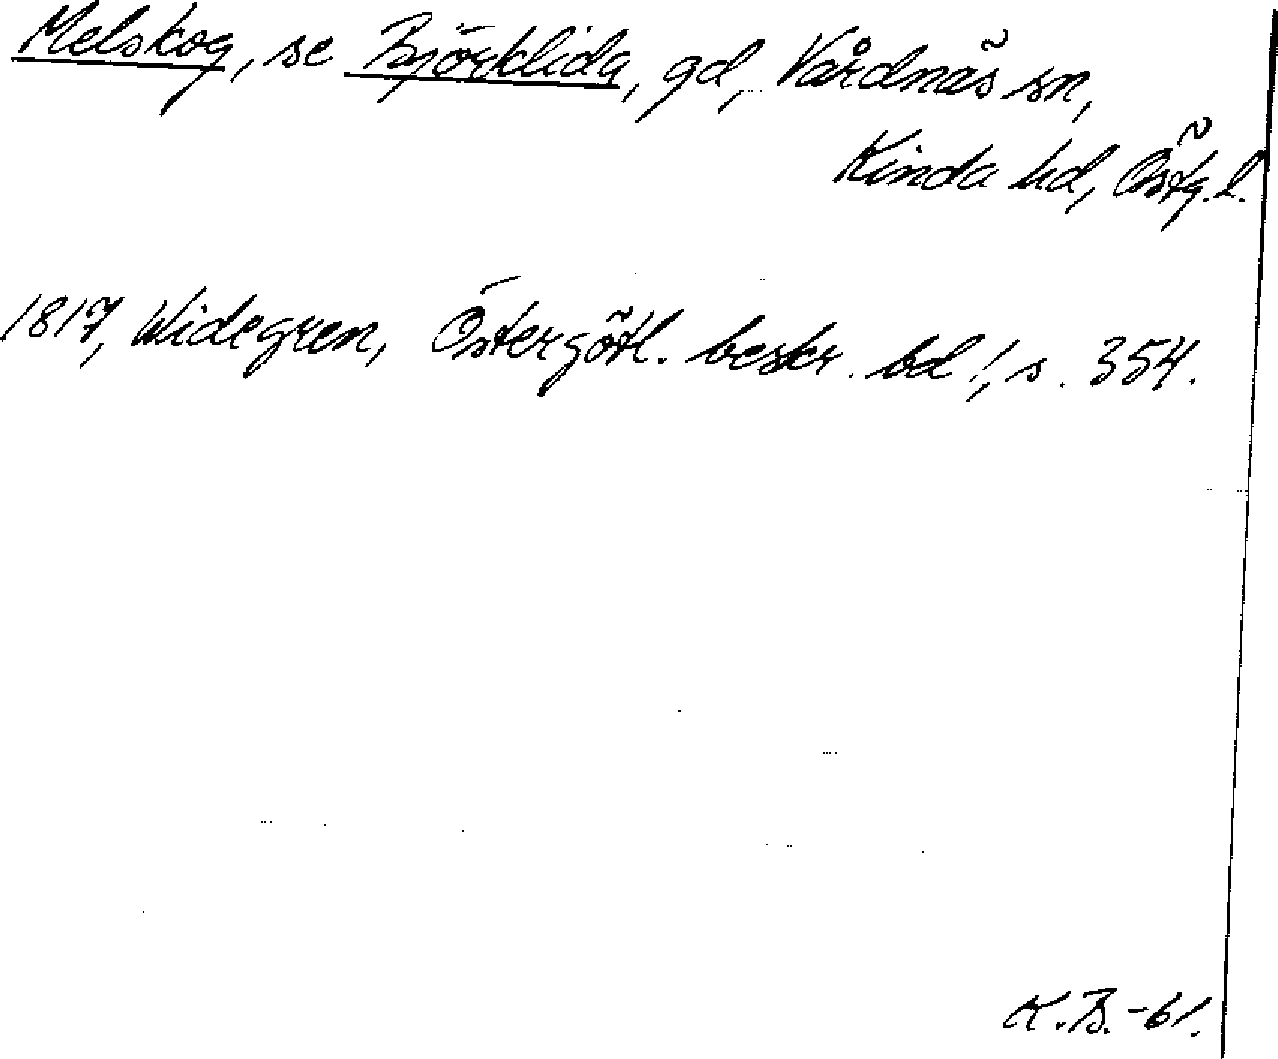 Melskog, se Björklida, gd, Vårdnäs sn,
Kinda hd, Östg. l.
1817, Widegren, Östergötl. beskr. bd 1, s. 354.
K. B. -61.